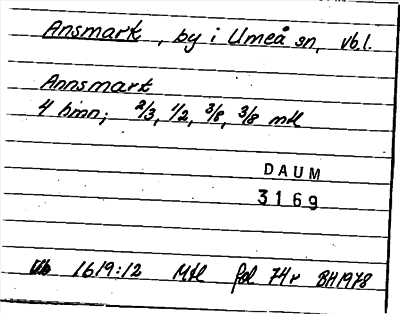 Ansmark, by i Umeå sn, vbl.
Annsmark
4 hmn; 2/3, 1/2, 3/8, 3/8 mtl
DAUM
3169
Vb 1619:12 Mtl fol 74r BH1978